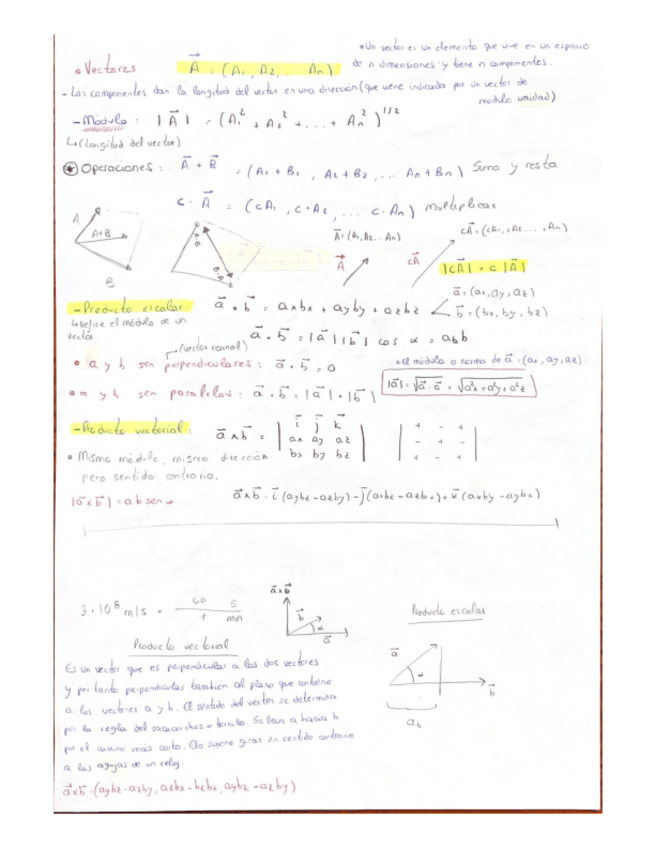 • Un vector es un elemento que vive en un espacio
de n dimensiones y tiene n componentes.
• Vectores A⃗ = (A₁, A₂, ... Aₙ)
- Las componentes dan la longitud del vector en una dirección (que viene indicada por un vector de
modulo unidad)
- Módulo: |A⃗| = (A₁² + A₂² + ... + Aₙ²)^1/2
↳ (Longitud del vector)
Operaciones: A⃗ + B⃗ = (A₁ + B₁, A₂ + B₂, ... Aₙ + Bₙ) Suma y resta
c · A⃗ = (cA₁, c·A₂, ... c·Aₙ) multiplicar
A
A+B
B
A-B
B-A
A⃗ = (A₁, A₂... Aₙ)
A⃗
cA⃗ = (cA₁, cA₂ ... cAₙ)
cA⃗
|cA⃗| = c |A⃗|
- Producto escalar: a⃗ · b⃗ = axbx + ayby + azbz
a⃗ = (ax, ay, az)
b⃗ = (bx, by, bz)
↳ Define el módulo de un
vector
a⃗ · b⃗ = |a⃗| |b⃗| cos α = abb
(vector normal)
• a y b son perpendiculares: a⃗ · b⃗ = 0
• el módulo o norma de a⃗ = (ax, ay, az):
• a y b son paralelos: a⃗ · b⃗ = |a⃗| · |b⃗|
|a⃗| = √a⃗ · a⃗ = √a²x + a²y + a²z
- Producto vectorial: a⃗ x b⃗ =
i⃗ j⃗ k⃗
ax ay az
bx by bz
+ - +
- + -
+ - +
• Mismo módulo, misma dirección
pero sentido contrario.
|a⃗ x b⃗| = ab sen α
a⃗ x b⃗ = i⃗ (aybz - azby) - j⃗ (axbz - azbx) + k⃗ (axby - aybx)
3 · 10⁸ m/s = 60 s / 1 min
a⃗ x b⃗
b⃗
α
a⃗
Producto escalar
a⃗
α
b⃗
ab
Producto vectorial
Es un vector que es perpendicular a los dos vectores
y por tanto perpendicular también al plano que contiene
a los vectores a y b. El sentido del vector se determina
por la regla del sacacorchos o tornillo. Se lleva a hacia b
por el camino más corto. Eso supone girar en sentido contrario
a las agujas de un reloj.
a⃗ x b⃗ = (aybz - azby, azbx - bzbx, aybz - azby)